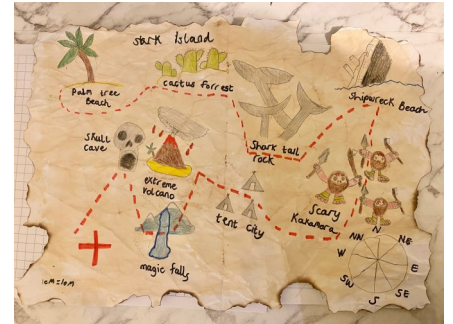 Stark Island
Palm tree
Beach
cactus forrest
Shipwreck Beach
Skull
cave
Shark tail
rock
extreme
volcano
tent city
Scary
Kakamora
magic falls
N
NE
E
SE
S
SW
W
NN
1cm=10M